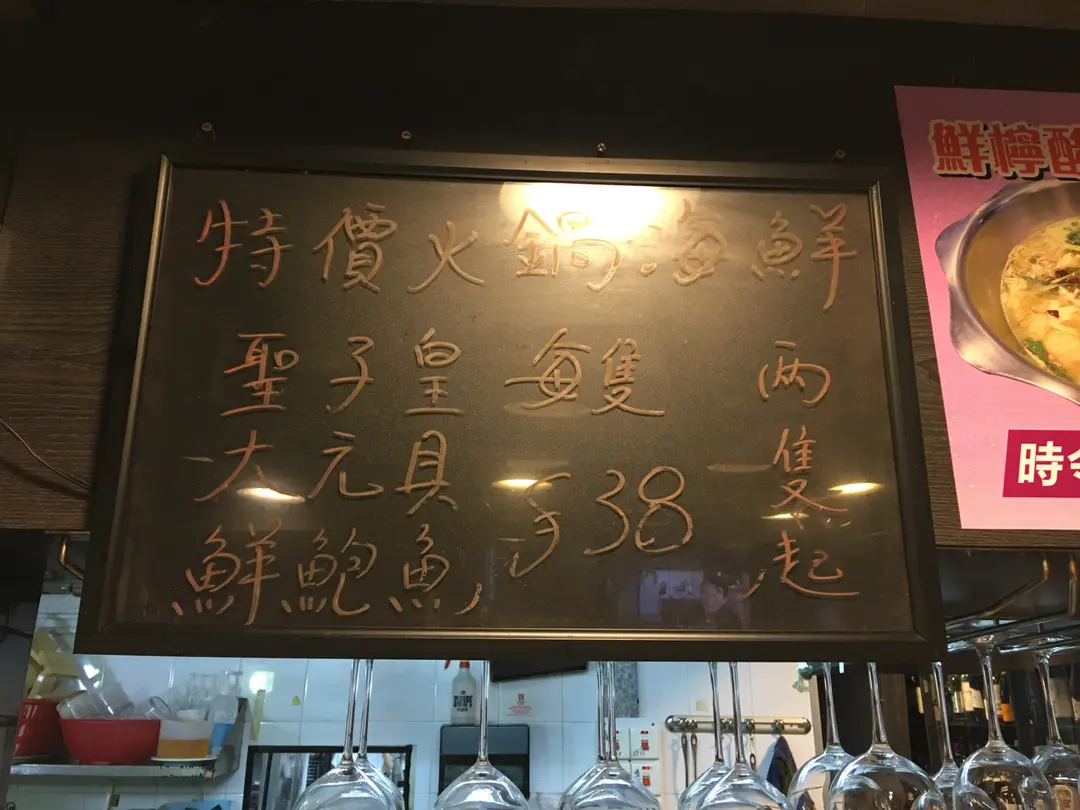 特價火鍋海鮮
聖子皇 每隻 两隻起
大元具 $38
鮮鮑魚
鮮檸酸
時令